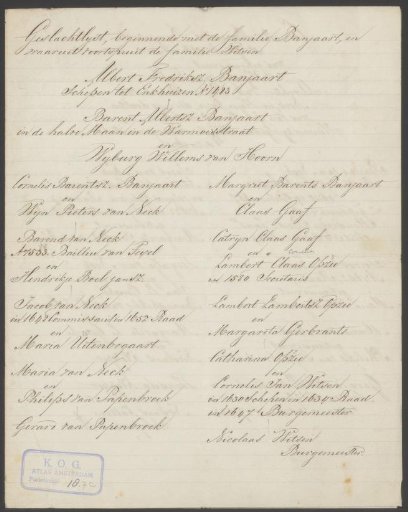 Geslachtlyst, beginnende met de familie Banjaart, en
waaruit voortspruit de familie Witsen
Albert Fredriksz Banjaart
Schepen tot Enkhuizen Aº 1483
Barent Albertsz Banjaart
in de halve Maan in de Warmoesstraat
en
Wyburg Willems van Hoorn
Cornelis Barentsz. Banjaart
en
Wyn Pieters van Neck
Barend van Neck
Aº 1533 Bailluw van Texel
en
Hendrikje Boel Jansz
Jacob van Neck
in 1647 Commissaris in 1652 Raad
en
Maria Uitenbogaart
Maria van Neck
en
Philips van Papenbroek
Gerard van Papenbroek
Margriet Barents Banjaart
en
Claas Gaaf
Catryn Claas Gaaf
en
Lambert Claas Opzee
in 1580 Secretaris
Lambert Lambertsz Opzee
en
Margarita Gerbrants
Catharina Opzee
en
Cornelis Jan Witsen
in 1630 Schepen in 1639 Raad
in 1647 Burgemeester
Nicolaas Witsen
Burgemeester
K. O. G.
ATLAS AMSTERDAM
Portefeuille